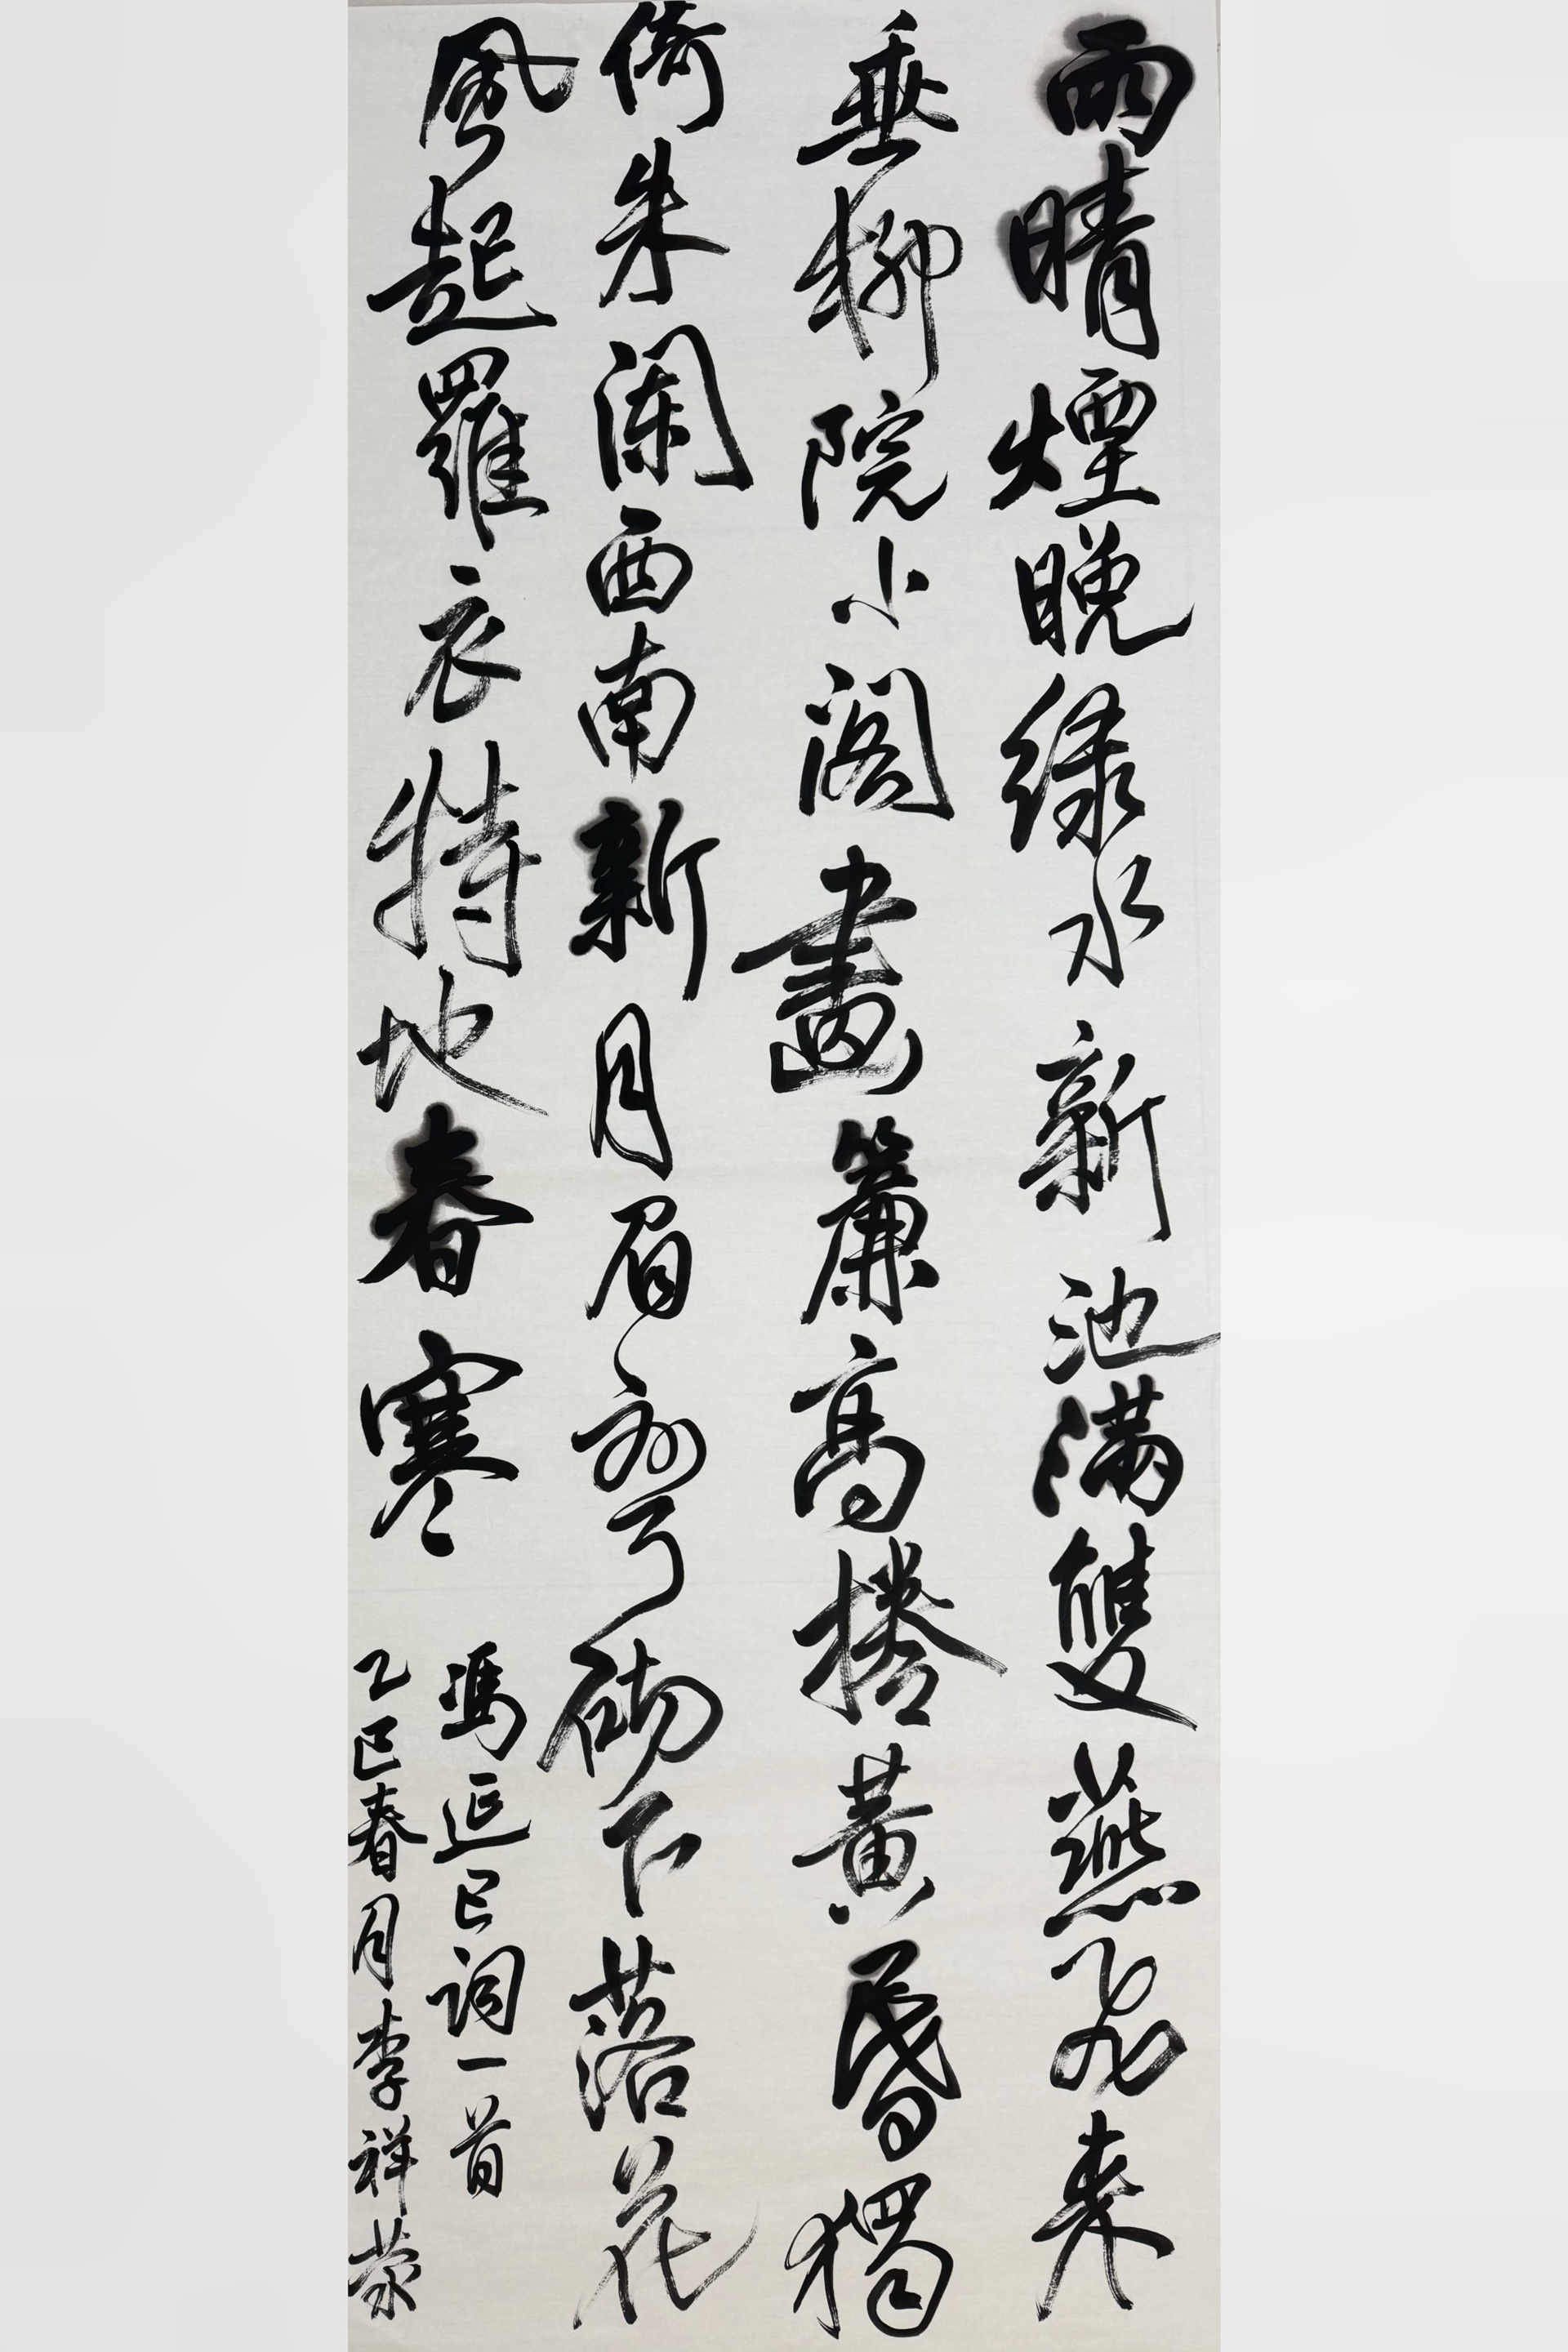 雨晴煙晚綠水新池滿雙燕飛來
垂柳院小閣畫簾高捲黃昏獨
倚朱闌西南新月眉彎砌下落花
風起羅衣特地春寒
馮延巳詞一首
乙巳春月李祥蒙